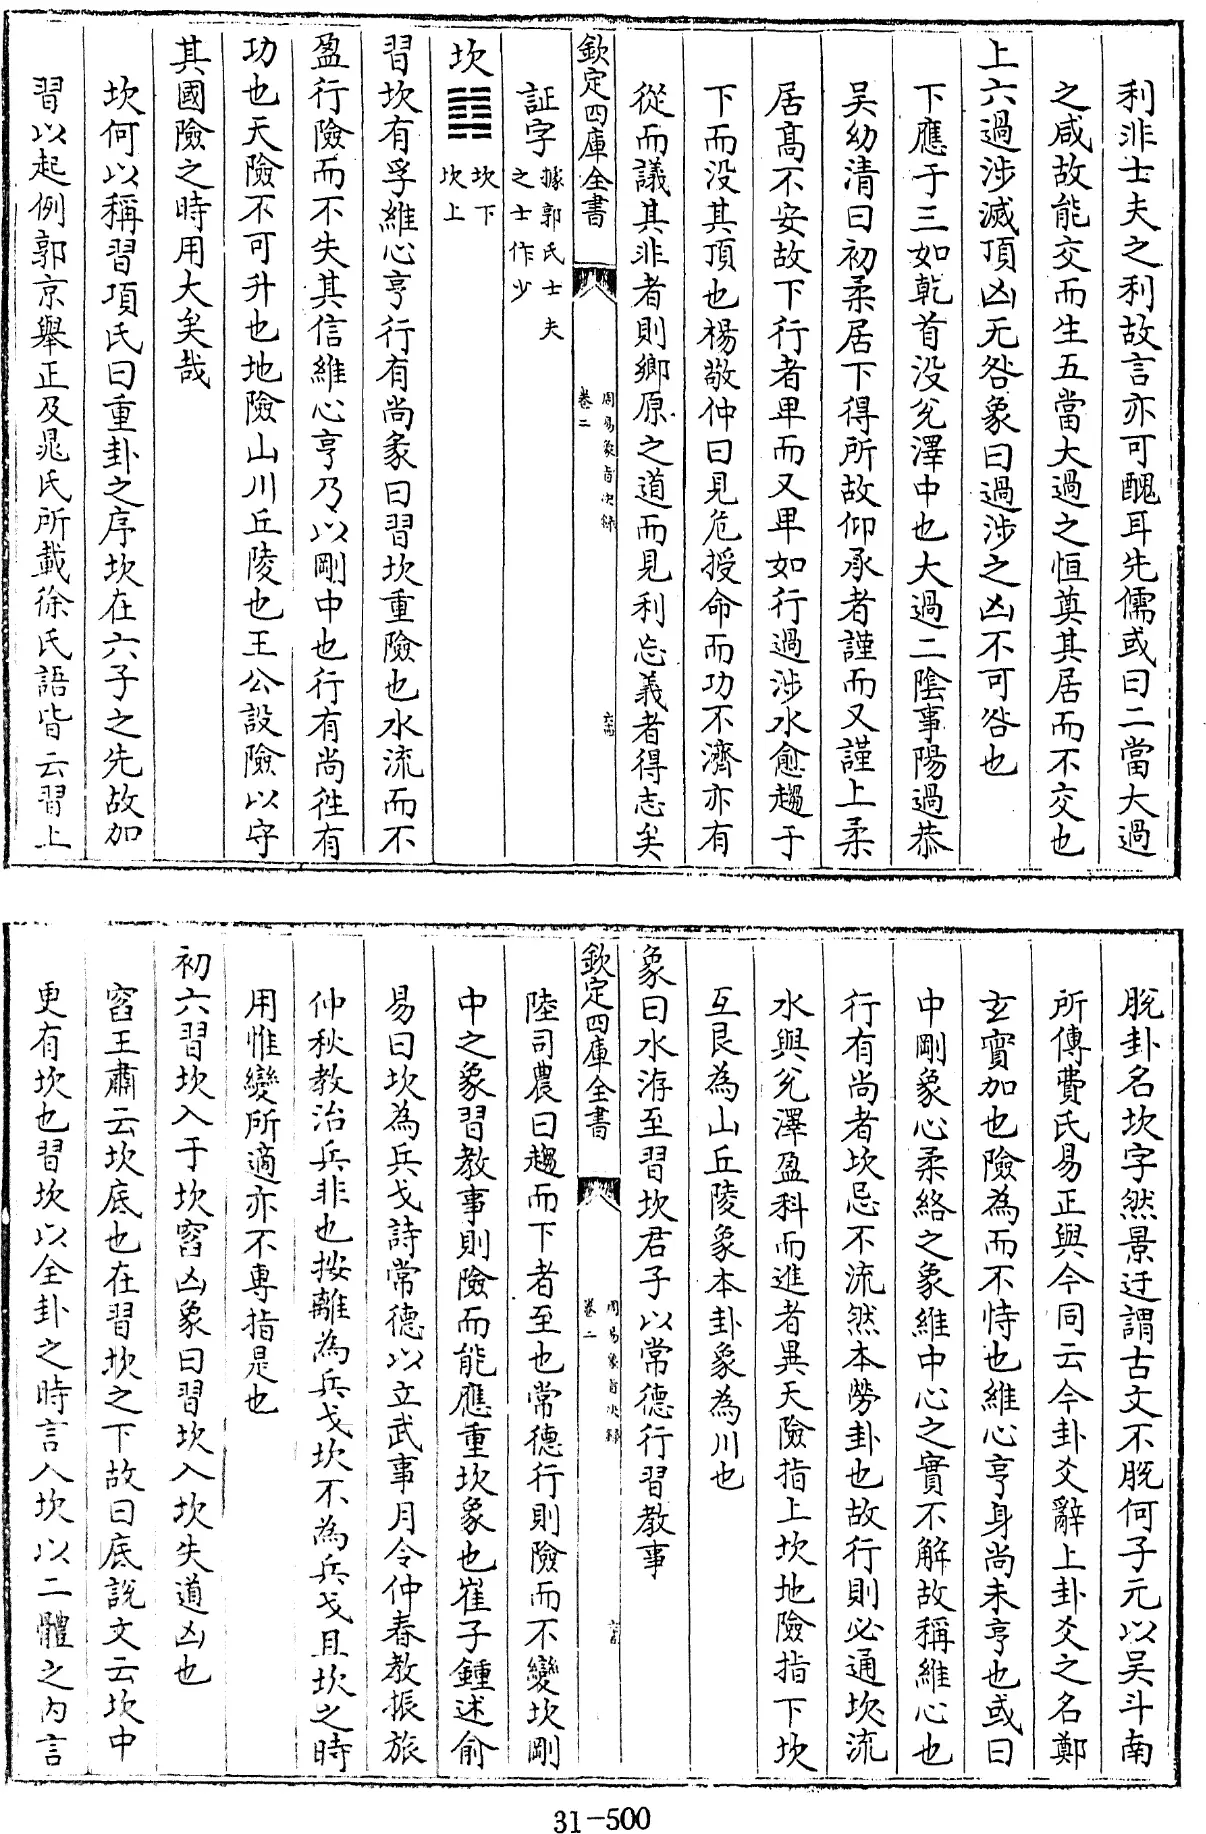 利非士夫之利故言亦可醜耳先儒或曰二當大過
之咸故能交而生五當大過之恒奠其居而不交也
上六過涉滅頂凶无咎象曰過涉之凶不可咎也
下應于三如乾首没兌澤中也大過二陰事陽過恭
吳幼清曰初柔居下得所故仰承者謹而又謹上柔
居高不安故下行者卑而又卑如行過涉水愈趨于
下而没其頂也楊敬仲曰見危授命而功不濟亦有
從而議其非者則鄉原之道而見利忘義者得志矣
欽定四庫全書
周易象旨決錄
卷二
証字
據郭氏士夫
之士作少
坎䷜
坎下
坎上
習坎有孚維心亨行有尚彖曰習坎重險也水流而不
盈行險而不失其信維心亨乃以剛中也行有尚徃有
功也天險不可升也地險山川丘陵也王公設險以守
其國險之時用大矣哉
坎何以稱習項氏曰重卦之序坎在六子之先故加
習以起例郭京舉正及晁氏所載徐氏語皆云習上
脫卦名坎字然景迂謂古文不脫何子元以吳斗南
所傳費氏易正與今同云今卦爻辭上卦爻之名鄭
玄實加也險為而不恃也維心亨身尚未亨也或曰
中剛象心柔絡之象維中心之實不解故稱維心也
行有尚者坎忌不流然本勞卦也故行則必通坎流
水與兌澤盈科而進者異天險指上坎地險指下坎
互艮為山丘陵象本卦象為川也
象曰水洊至習坎君子以常德行習教事
欽定四庫全書
周易象旨決錄
卷二
陸司農曰趨而下者至也常德行則險而不變坎剛
中之象習教事則險而能應重坎象也崔子鍾述俞
易曰坎為兵戈詩常德以立武事月令仲春教振旅
仲秋教治兵非也按離為兵戈坎不為兵戈且坎之時
用惟變所適亦不專指是也
初六習坎入于坎窞凶象曰習坎入坎失道凶也
窞王肅云坎底也在習坎之下故曰底説文云坎中
更有坎也習坎以全卦之時言入坎以二體之内言
31-500